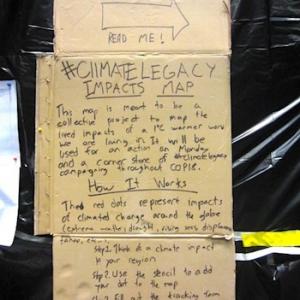 READ ME!
#CLIMATELEGACY
IMPACTS MAP
This map is meant to be a
collective project to map the
lived impacts of a 1°C warmer world
we are living in. It will be
used for an action on Monday
and a corner store of #climatelegacy
campaigning throughout COP18.
How It Works
red dots represent impacts
of climated change around the globe
(extreme weather, drought, rising seas,
Step 1. Think of a climate impact
in your region
Step 2. Use the stencil to add
your dot to the map
out the tracking form